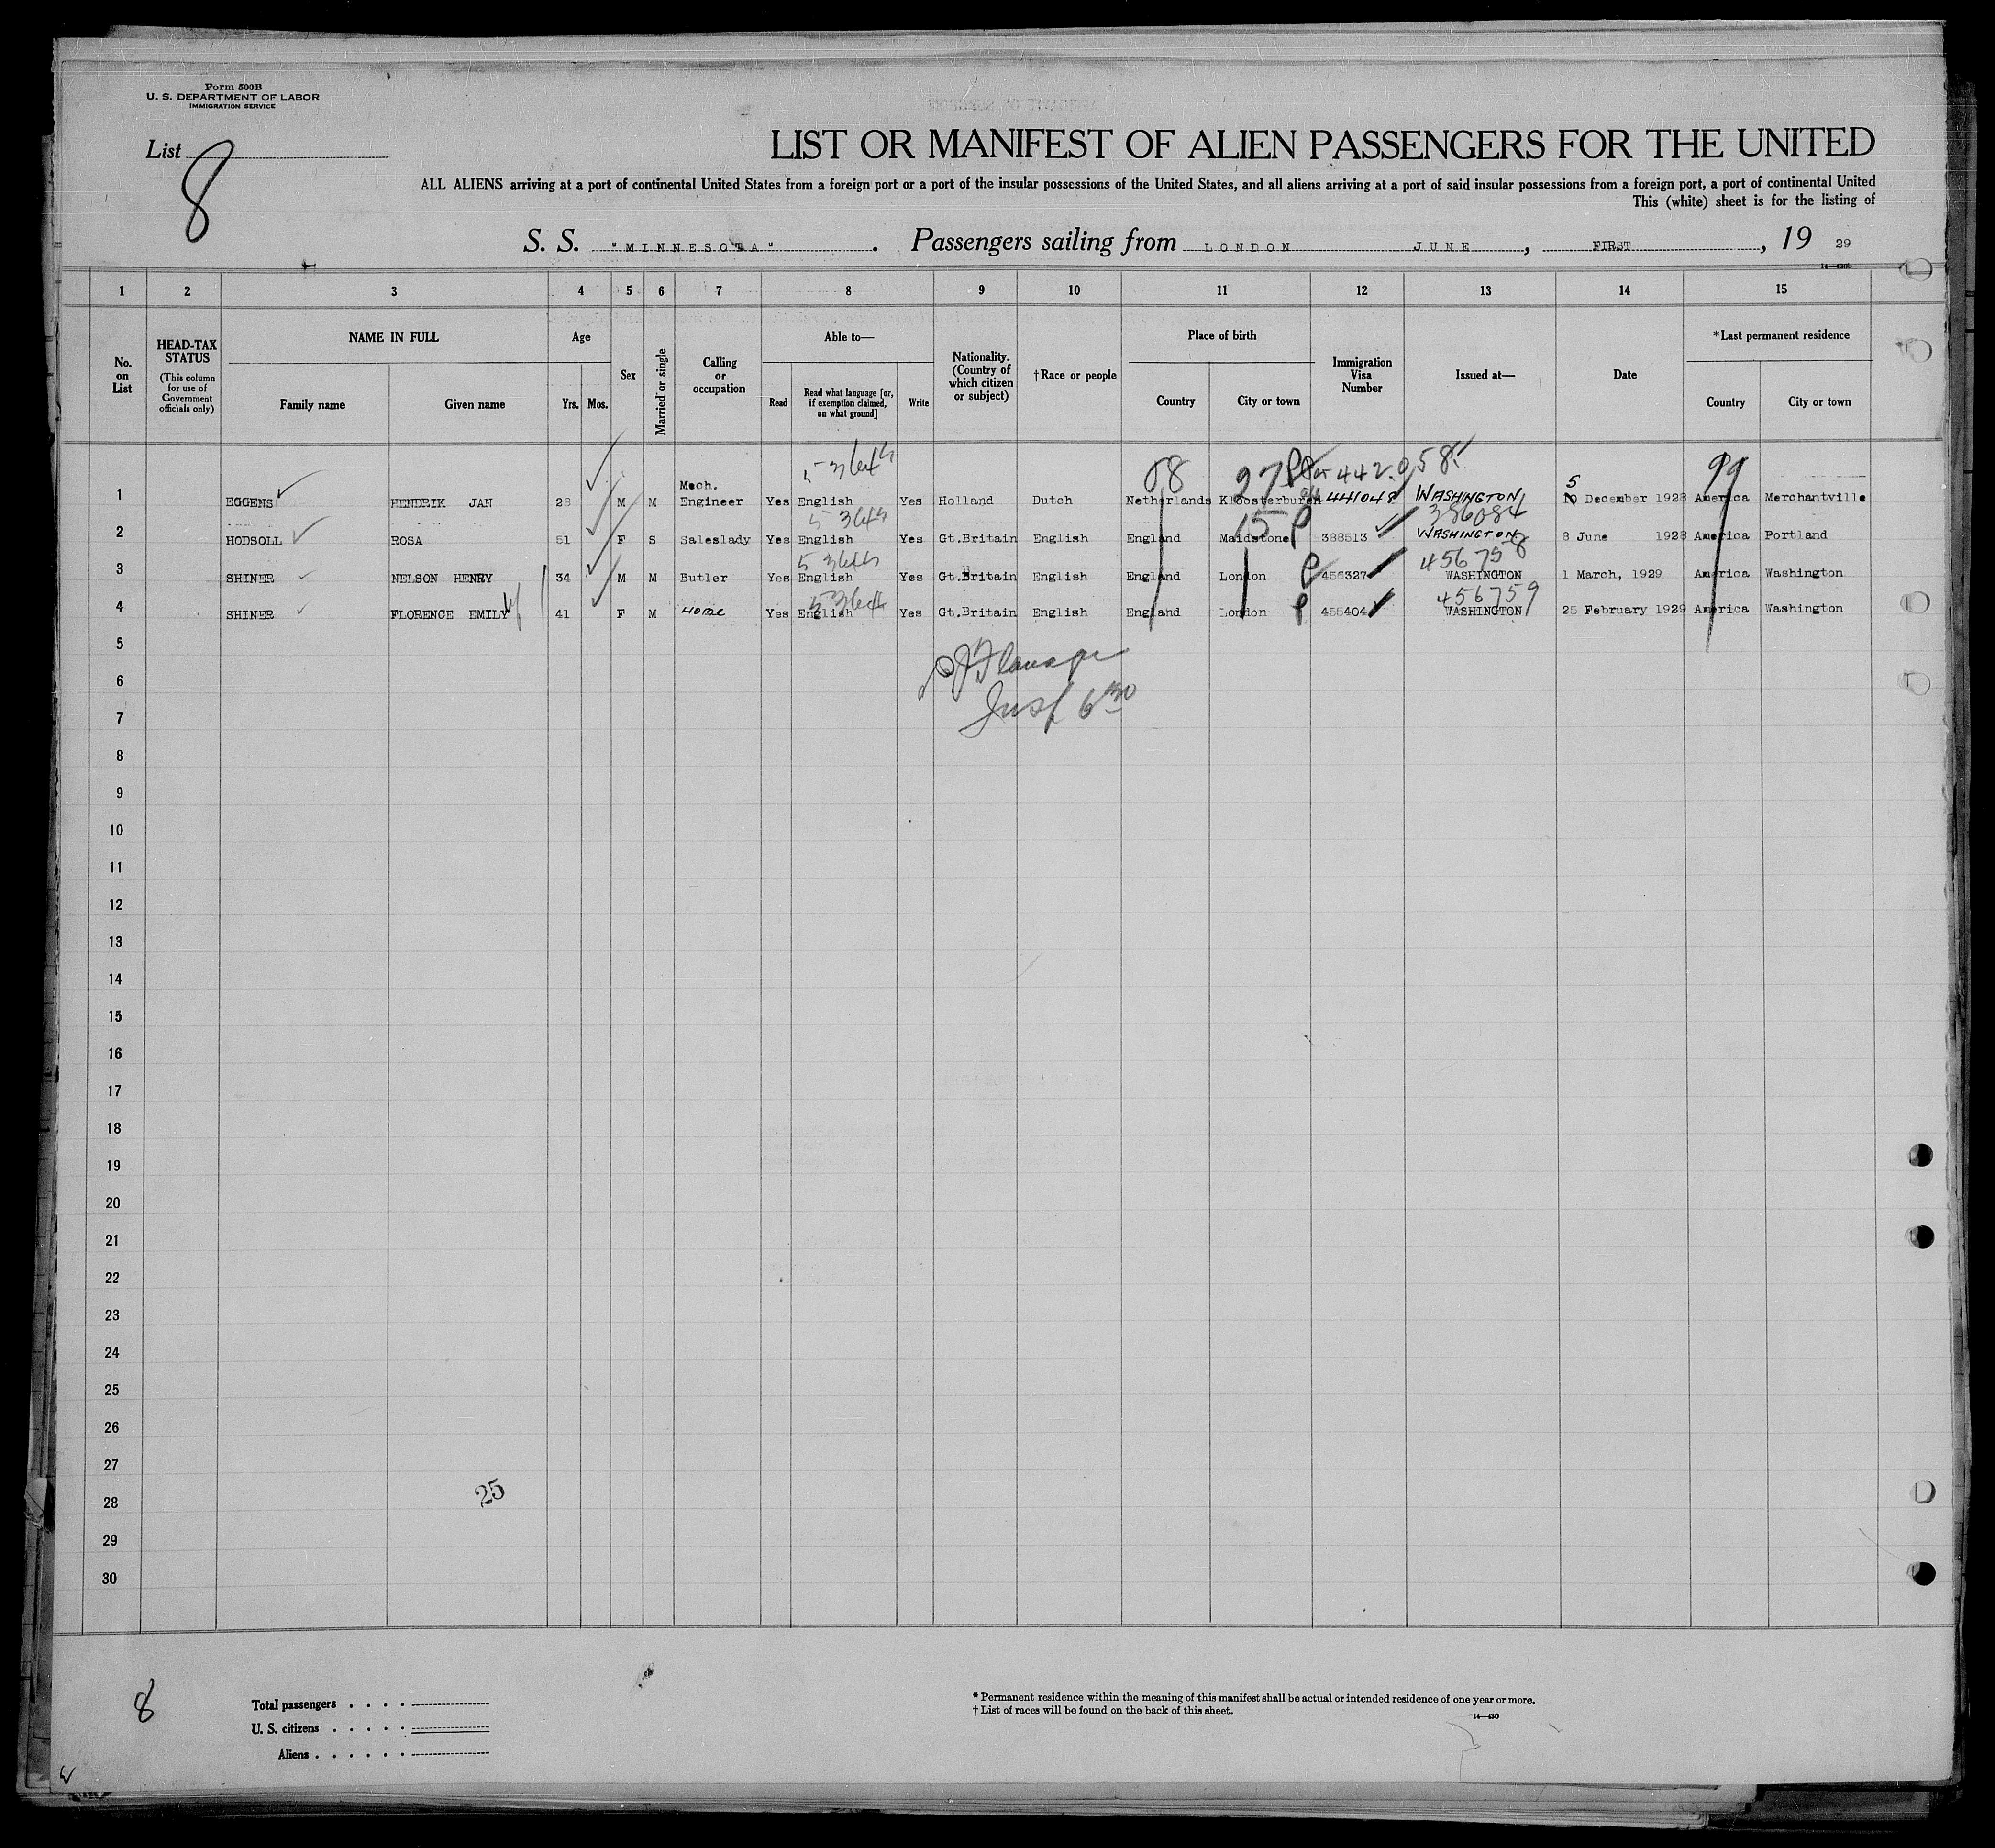 Form 500B
U. S. DEPARTMENT OF LABOR
IMMIGRATION SERVICE
List 8
LIST OR MANIFEST OF ALIEN PASSENGERS FOR THE UNITED
ALL ALIENS arriving at a port of continental United States from a foreign port or a port of the insular possessions of the United States, and all aliens arriving at a port of said insular possessions from a foreign port, a port of continental United
This (white) sheet is for the listing of
S. S. "MINNESOTA". Passengers sailing from LONDON JUNE, FIRST, 19 29
14—430b
1 2 3 4 5 6 7 8 9 10 11 12 13 14 15
No. on List
HEAD-TAX STATUS
(This column for use of Government officials only)
NAME IN FULL
Family name Given name
Age
Yrs. Mos.
Sex
Married or single
Calling or occupation
Able to—
Read
Read what language [or, if exemption claimed, on what ground]
Write
Nationality. (Country of which citizen or subject)
†Race or people
Place of birth
Country City or town
Immigration Visa Number
Issued at—
Date
*Last permanent residence
Country City or town
53644 08 27 P 442058 99
1 EGGENS HENDRIK JAN 28 M M Mech. Engineer Yes English Yes Holland Dutch Netherlands Kloosterburen 441048 WASHINGTON 5 December 1928 America Merchantville
53644 15 P 386084
2 HODSOLL ROSA 51 F S Saleslady Yes English Yes Gt.Britain English England Maidstone 388513 WASHINGTON 8 June 1928 America Portland
53644 P 456758
3 SHINER NELSON HENRY 34 M M Butler Yes English Yes Gt.Britain English England London 456327 WASHINGTON 1 March, 1929 America Washington
53644 P 456759
4 SHINER FLORENCE EMILY 41 F M Yes English Yes Gt.Britain English England London 455404 WASHINGTON 25 February 1929 America Washington
5
6
Insp 6 30
7
8
9
10
11
12
13
14
15
16
17
18
19
20
21
22
23
24
25
26
27
25
28
29
30
8
Total passengers
U. S. citizens
Aliens
* Permanent residence within the meaning of this manifest shall be actual or intended residence of one year or more.
† List of races will be found on the back of this sheet.
14—430